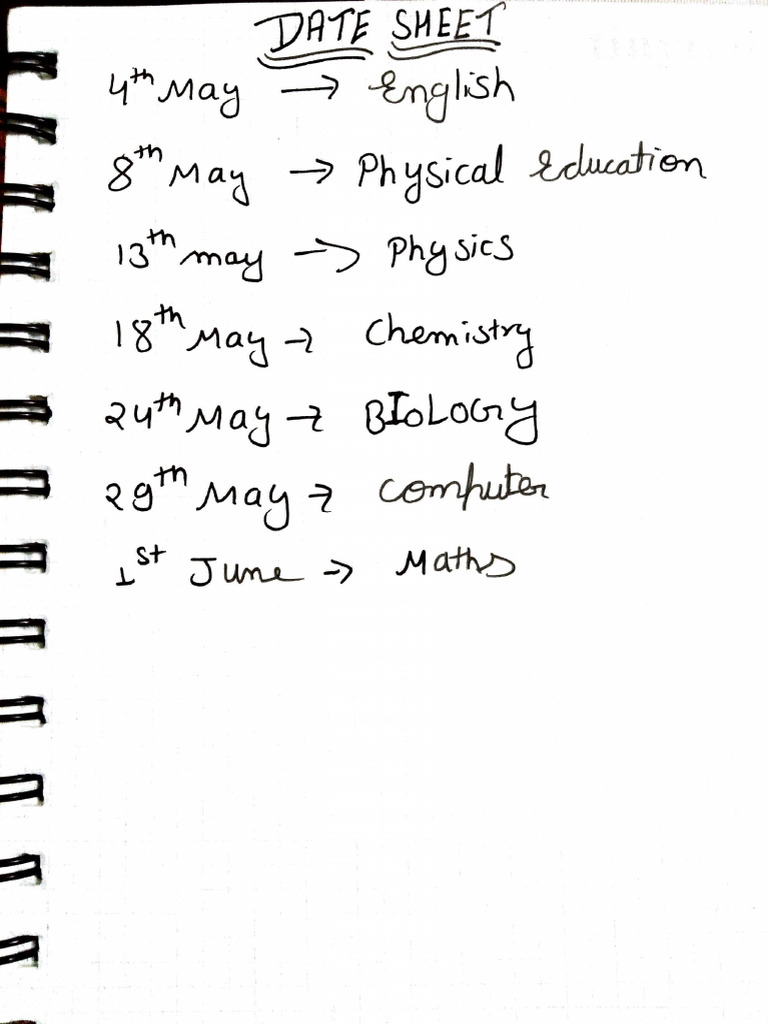 DATE SHEET
4th May → English
8th May → Physical Education
13th may → Physics
18th May → Chemistry
24th May → BIOLOGY
29th May → Computer
1st June → Maths